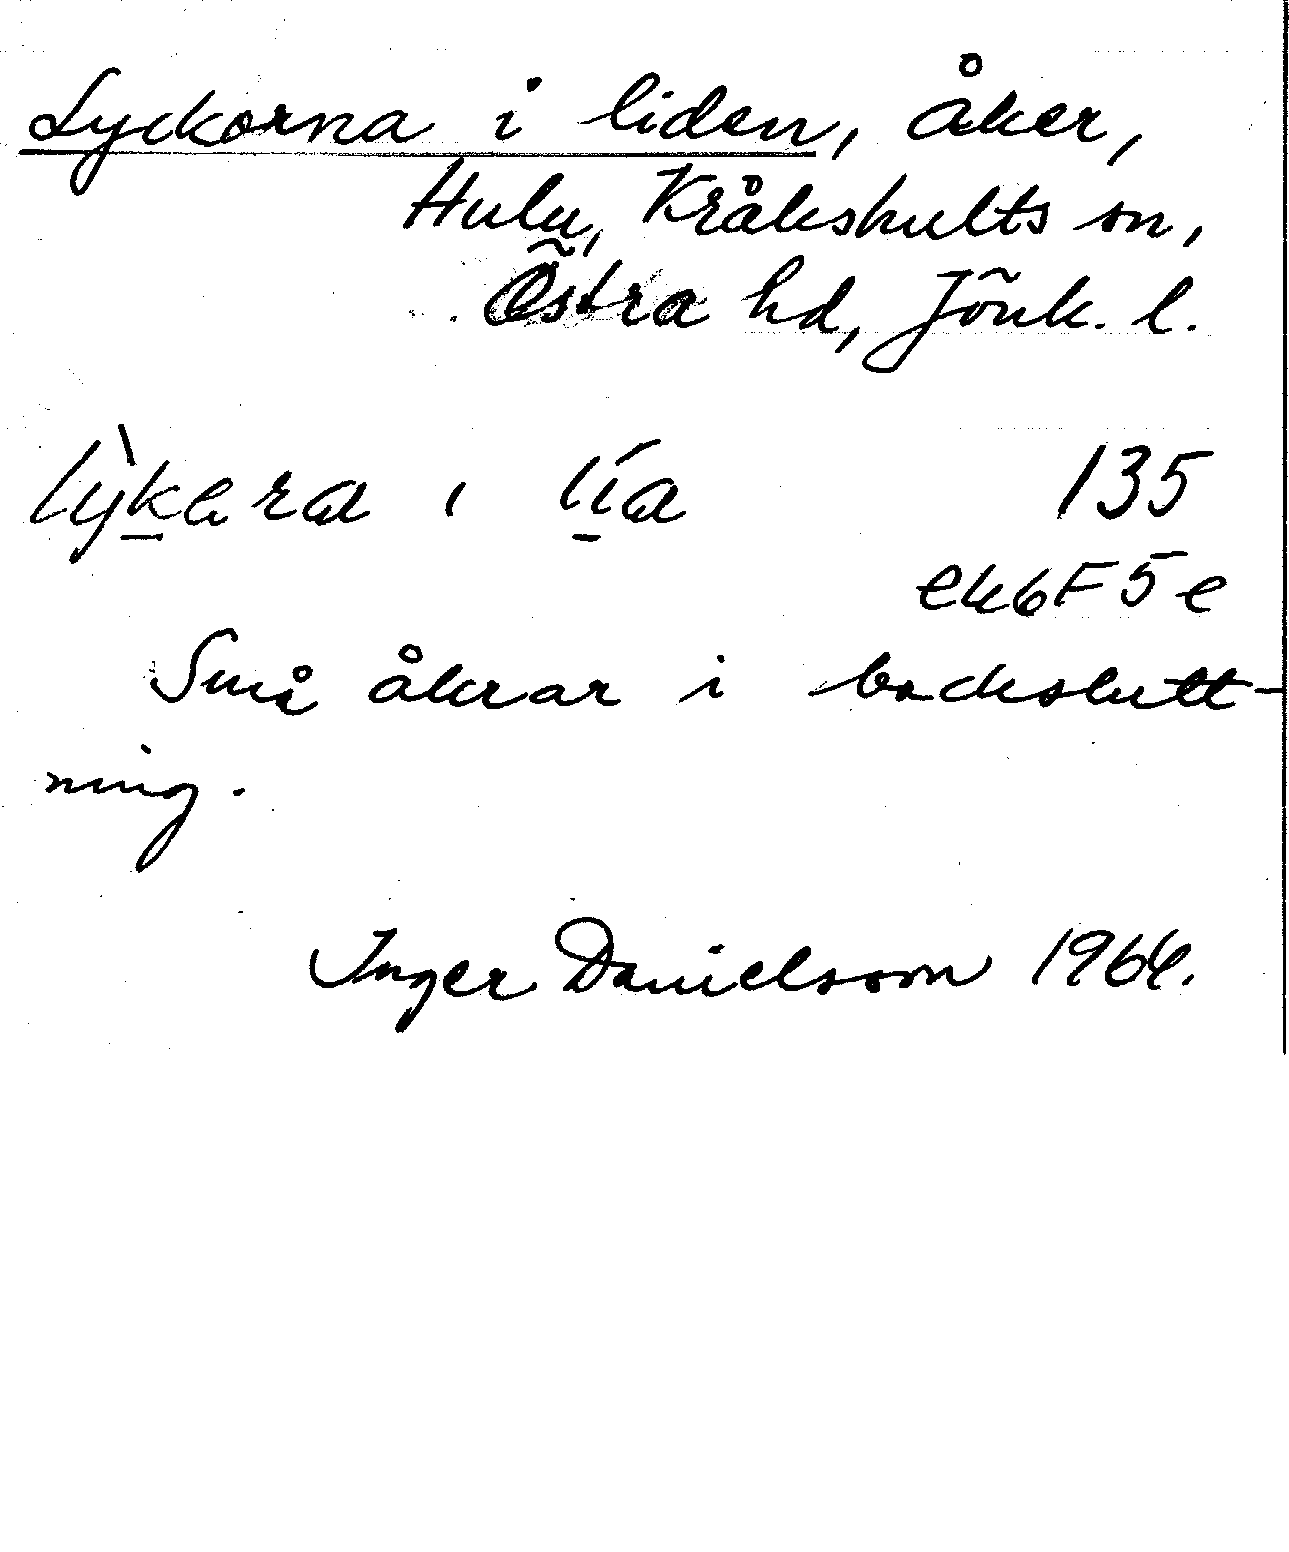 Lyckorna i liden, åker,
Hulu, Kråkshults sn,
Östra hd, Jönk. l.
lỳkera i lía 135
ek6F5e
Små åkrar i backslutt-
ning.
Inger Danielsson 1964.